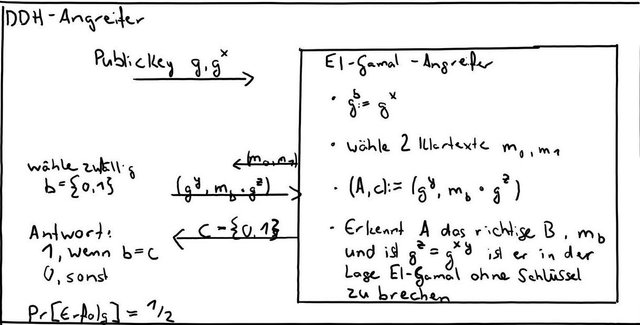 DDH-Angreifer
PublicKey g, g^x
El-Gamal-Angreifer
• g^b := g^x
• wähle 2 Klartexte m_0, m_1
(m_0, m_1)
wähle zufällig
b = {0,1}
(g^y, m_b · g^z)
• (A,c) := (g^y, m_b · g^z)
C = {0,1}
Antwort:
1, wenn b=c
0, sonst
• Erkennt A das richtige B, m_b
und ist g^z = g^xy ist er in der
Lage El-Gamal ohne Schlüssel
zu brechen
Pr[Erfolg] = 1/2